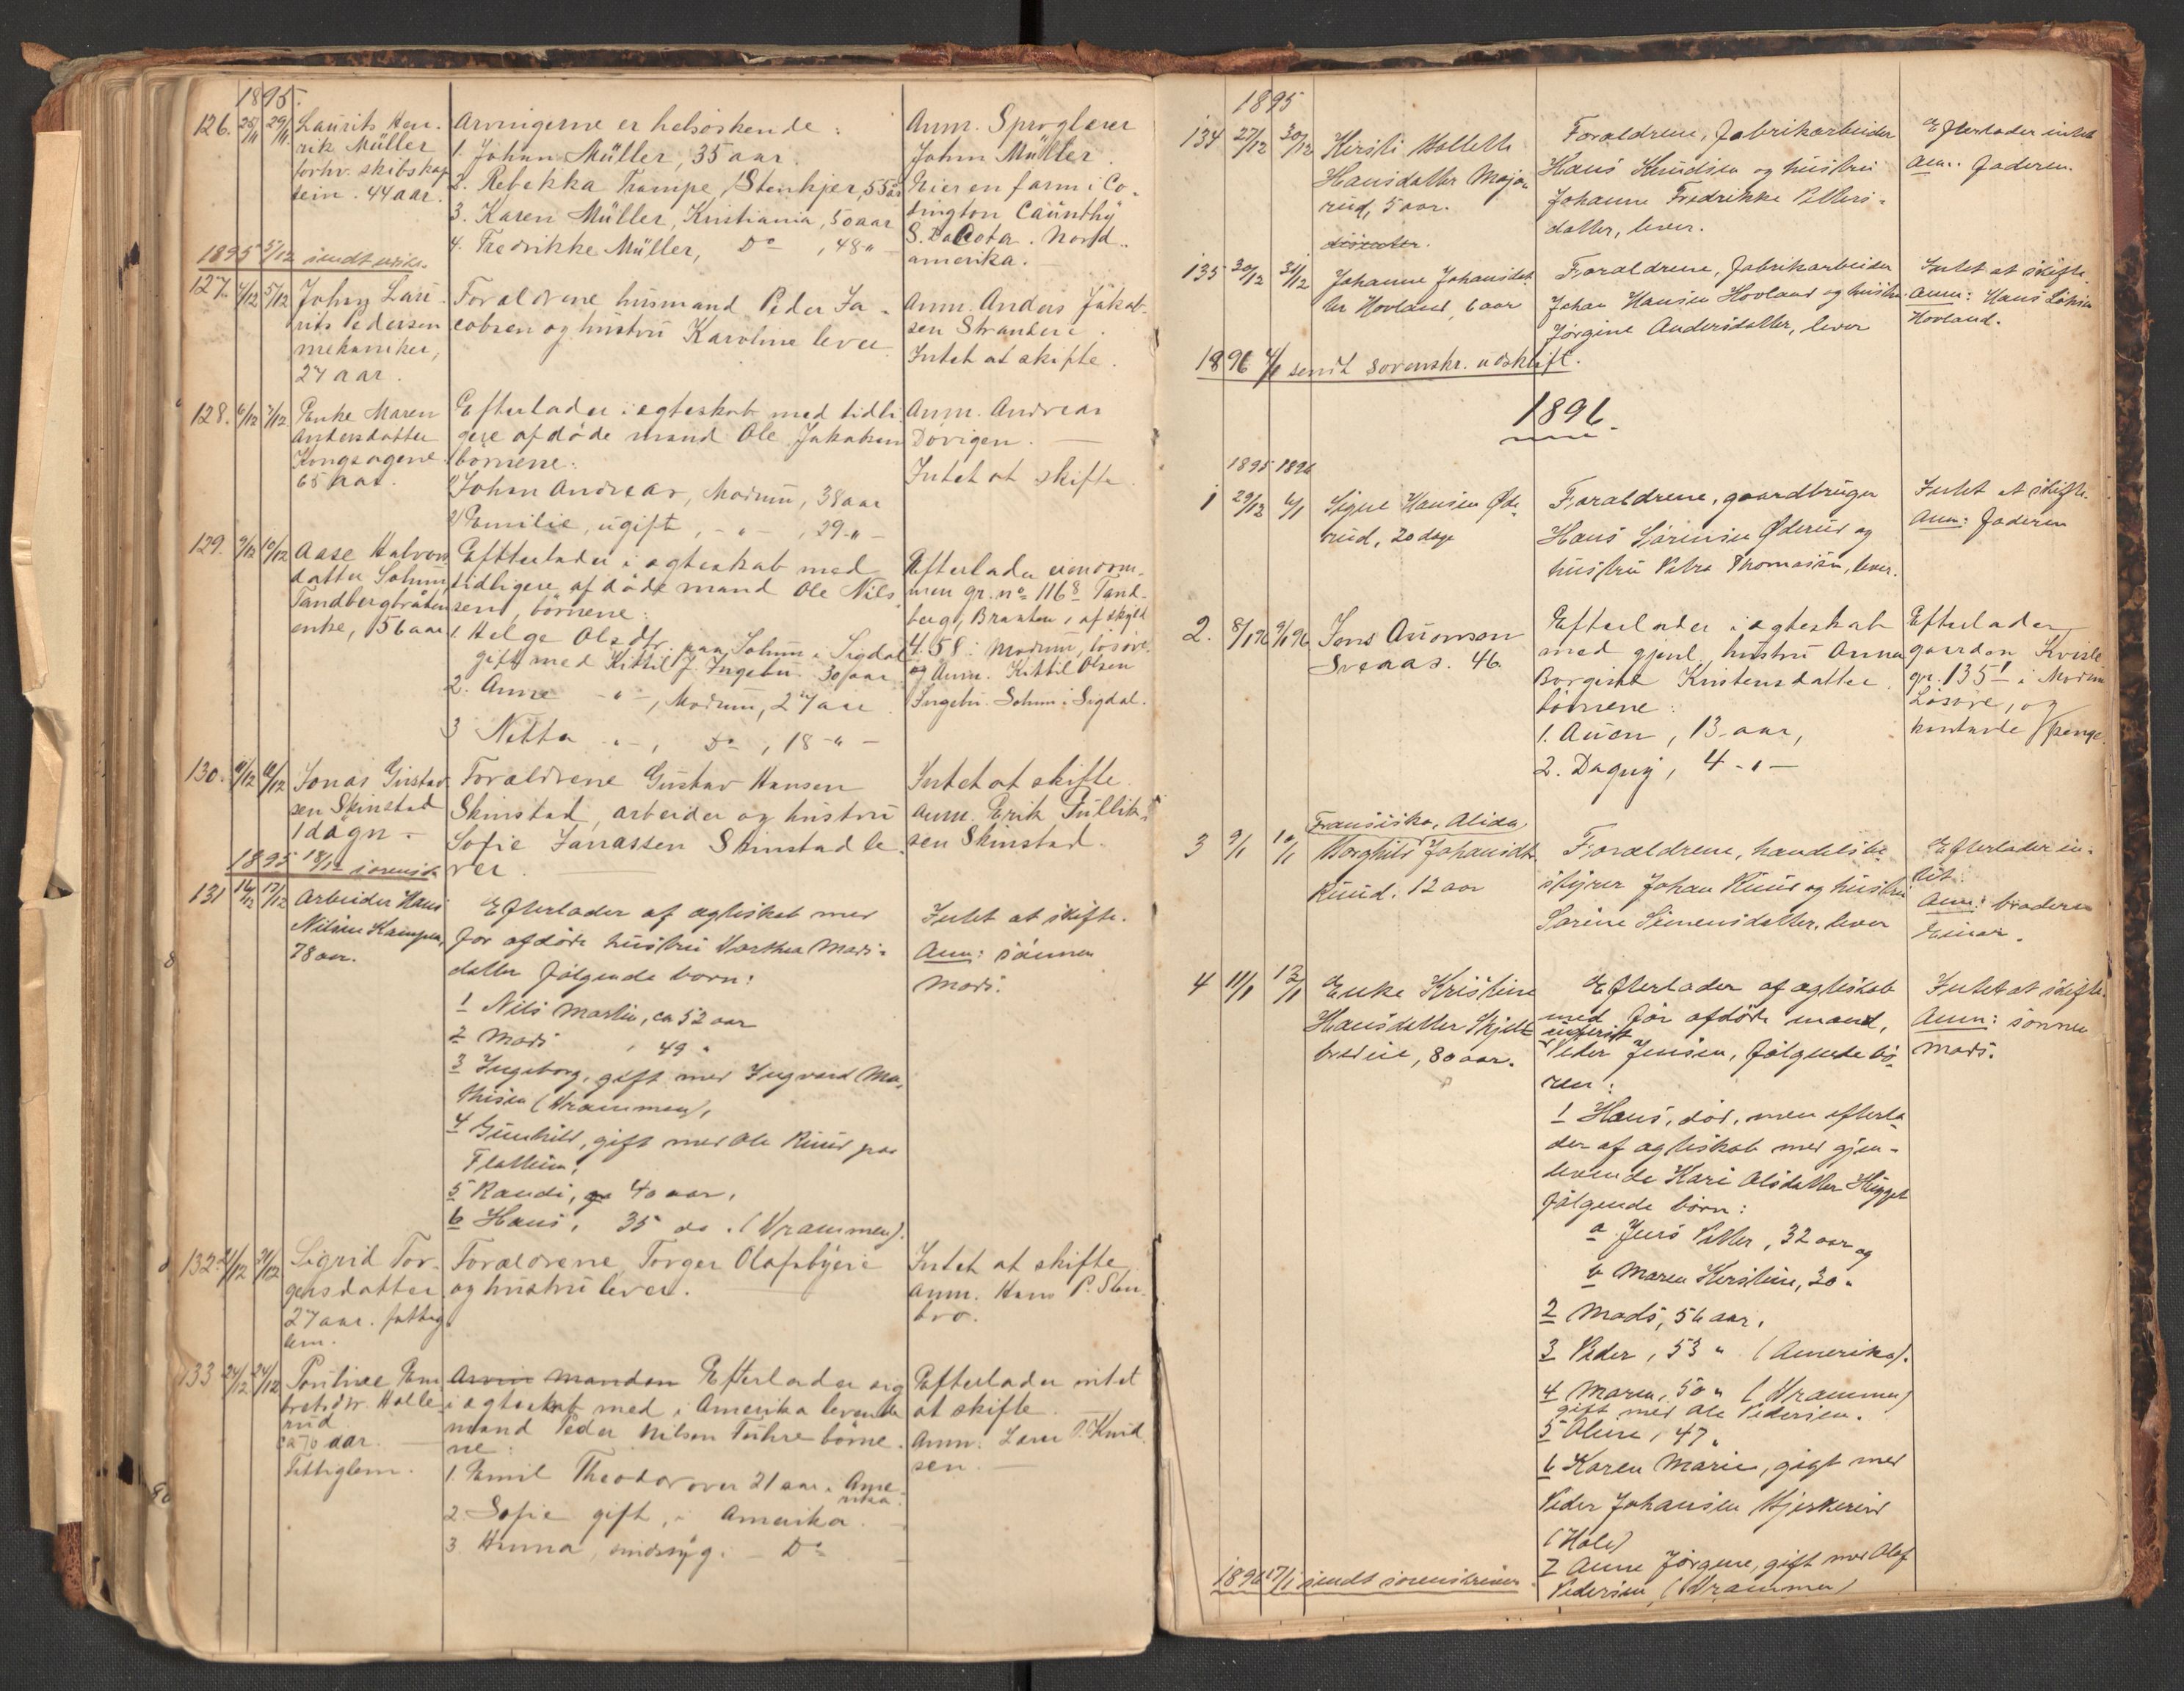 1895.
126. 25/11 29/11 Laurits Hen-
rik Müller
forhv. skibskap
tein. 44 aar.
Arvingerne er helsøskende:
1. Johan Müller, 35 aar.
2. Rebekka Trampe, Stenkjer, 55 aar
3. Karen Müller, Kristiania, 50 aar
4. Fredrikke Müller, Do, 48 "
Anm. Sproglærer
John Müller.
Eier en farm i Co-
dington Caünthÿ
S. Dakota. Nord-
amerika.
1895 5/12 sendt
127. 4/12 5/12 Johny Lau-
rits Pedersen
mekaniker,
27 aar.
Forældrene husmand Peder Ja-
cobsen og hustru Karoline lever.
Anm. Anders Jakob-
sen Stranberg.
Intet at skifte.
128. 6/12 7/12 Enke Maren
Andersdatter
Kongsagene
65 aar.
Efterlader i egteskab med tidli-
gere afdöde mand Ole Jakobsen
börnene:
1/ Johan Andreas, Modum, 38 aar
2/ Emilie, ugift, - " -, 29 - " -
Anm. Andreas
Dövigen.
Intet at skifte.
129. 9/12 10/12 Aase Halvors
datter Solum,
Tandbergbråten
enke, 56 aar
Efterlader i egteskab med
tidligere afdöde mand Ole Nils-
sen, börnene:
1. Helge Olsdtr. paa Solum i Sigdal
gift med Kittil J. Ingebu. 30 aar
2. Anne - " -, Modum, 27 aar
3 Netta - " -, Do, 18 - " -
Efterlader eiendom-
men gr. no 116 8 Tand-
berg, Braaten, af skyld
4.58 i Modum, lösöre.
og Anm. Kittil Olsen
Ingebu. Solum i Sigdal.
130. 11/12 16/12 Jonas Gustav
sen Skinstad
1 dögn.
Forældrene Gustav Hansen
Skinstad, arbeider og hustru
Sofie Janassen Skinstad le-
ver.
Intet at skifte.
Anm. Erik Tüllik-
sen Skinstad.
1895 18/12 sorensk
131 16/12 17/12 Arbeider Hans
Nilsen Kampen,
78 aar.
Efterlader af ægteskab med
før afdøde hustru Marthea Mads-
datter følgende børn:
1 Nils Martin, ca 52 aar
2 Mads, 49 "
3 Ingeborg, gift med Ingvard Ma-
thisen (Drammen),
4 Gunhild, gift med Ole Ruud paa
Flattum,
5 Randi, 40 aar,
6 Hans, 35 do. (Drammen).
Intet at skifte.
Anm: sønnen
Mads.
132 21/12 21/12 Sigrid Tor-
gersdatter
27 aar. fattig
lem.
Forældrene Torger Olafsbyeie
og hustru lever.
Intet at skifte
Anm. Hans P. Sten-
bro.
133 24/12 24/12 Pauline Em
bretsdtr. Holle-
rud
ca 70 aar.
Fattiglem.
Arvin Manden Efterlader sig
i egteskab med i Amerika levende
mand Peder Nilsen Fuhre börne-
ne:
1. Emil Theodor over 21 aar. Ame-
rika.
2 Sofie gift, i Amerika.
3. Hanna, sindssyg. - Do
Efterlader intet
at skifte.
Anm. Lars O. Knud-
sen.
1895
134 27/12 30/12 Kersti Mathilde
Hansdatter Majo-
rud, 5 aar.
Forældrene, fabrikarbeider
Hans Knudsen og hustru
Johanne Fredrikke Petters-
datter, lever.
Efterlader intet
Anm: faderen.
135 30/12 31/12 Johanne Johansdat-
ter Hovland, 6 aar
Forældrene, fabrikarbeider
Johan Hansen Hovland og hustru
Jørgine Andersdatter, lever
Intet at skifte.
Anm: Hans Johan
Hovland.
1896 4/1 sendt sorenskr. udskrift.
1896.
1895 1896
1 29/12 4/1 Signe Hansen Øde-
rud, 20 dage
Forældrene, gaardbruger
Hans Sørensen Øderud og
hustru Petra Thomassen, lever.
Intet at skifte.
Anm: faderen
2. 8/1 96 9/1 96 Jens Auenson
Svaas. 46.
Efterlader i egteskab
med gjenl. hustru Anna
Borgine Kristensdatter
börnene:
1. Auen, 13 aar,
2. Dagny, 4 - " -
Efterlader
gaarden Kvisle
gr. 135 1 i Modum
Lösöre, og
kontante penge.
3 9/1 10/1 Fransiska, Alida
Borghild Johansdtr.
Ruud. 12 aar
Forældrene, handelsbe-
styrer Johan Ruud og hustru
Sørine Simensdatter, lever
Efterlader in-
tet.
Anm: broderen
Einar.
4 11/1 13/1 Enke Kristine
Hansdatter Skjelle-
bredeie, 80 aar.
Efterlader af ægteskab
med før afdøde mand,
Peder Jensen, følgende bø-
ren:
1 Hans, død, men efterla-
der af ægteskab med gjen-
levende Kari Olsdatter Hugget
følgende børn:
a Jens Petter, 32 aar og
b Maren Kirstine, 30 "
2 Mads, 56 aar,
3 Peder, 53 " (Amerika).
4 Maren, 50 " (Drammen)
gift med Ole Pedersen.
5 Oline, 47 "
6 Karen Marie, gift med
Peder Johansen Hjerkerud
(Hole)
7 Anne Jørgine, gift med Olaf
Pedersen (Drammen)
Intet at skifte.
Anm: sønnen
Mads.
1896 17/1 sendt sorenskriver